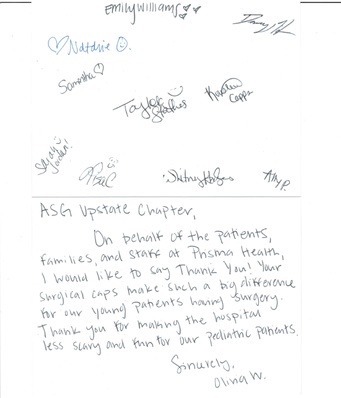 Emily Williams
Natalie
Samantha
Taylor Stokes
Kristen Capps
Sarah Jordan!
Whitney Hodges
Ally P.
ASG Upstate Chapter,
On behalf of the patients,
families, and staff at Prisma Health,
I would like to say Thank You! Your
surgical caps make such a big difference
for our young patients having surgery.
Thank you for making the hospital
less scary and fun for our pediatric patients.
Sincerely,
Olina W.